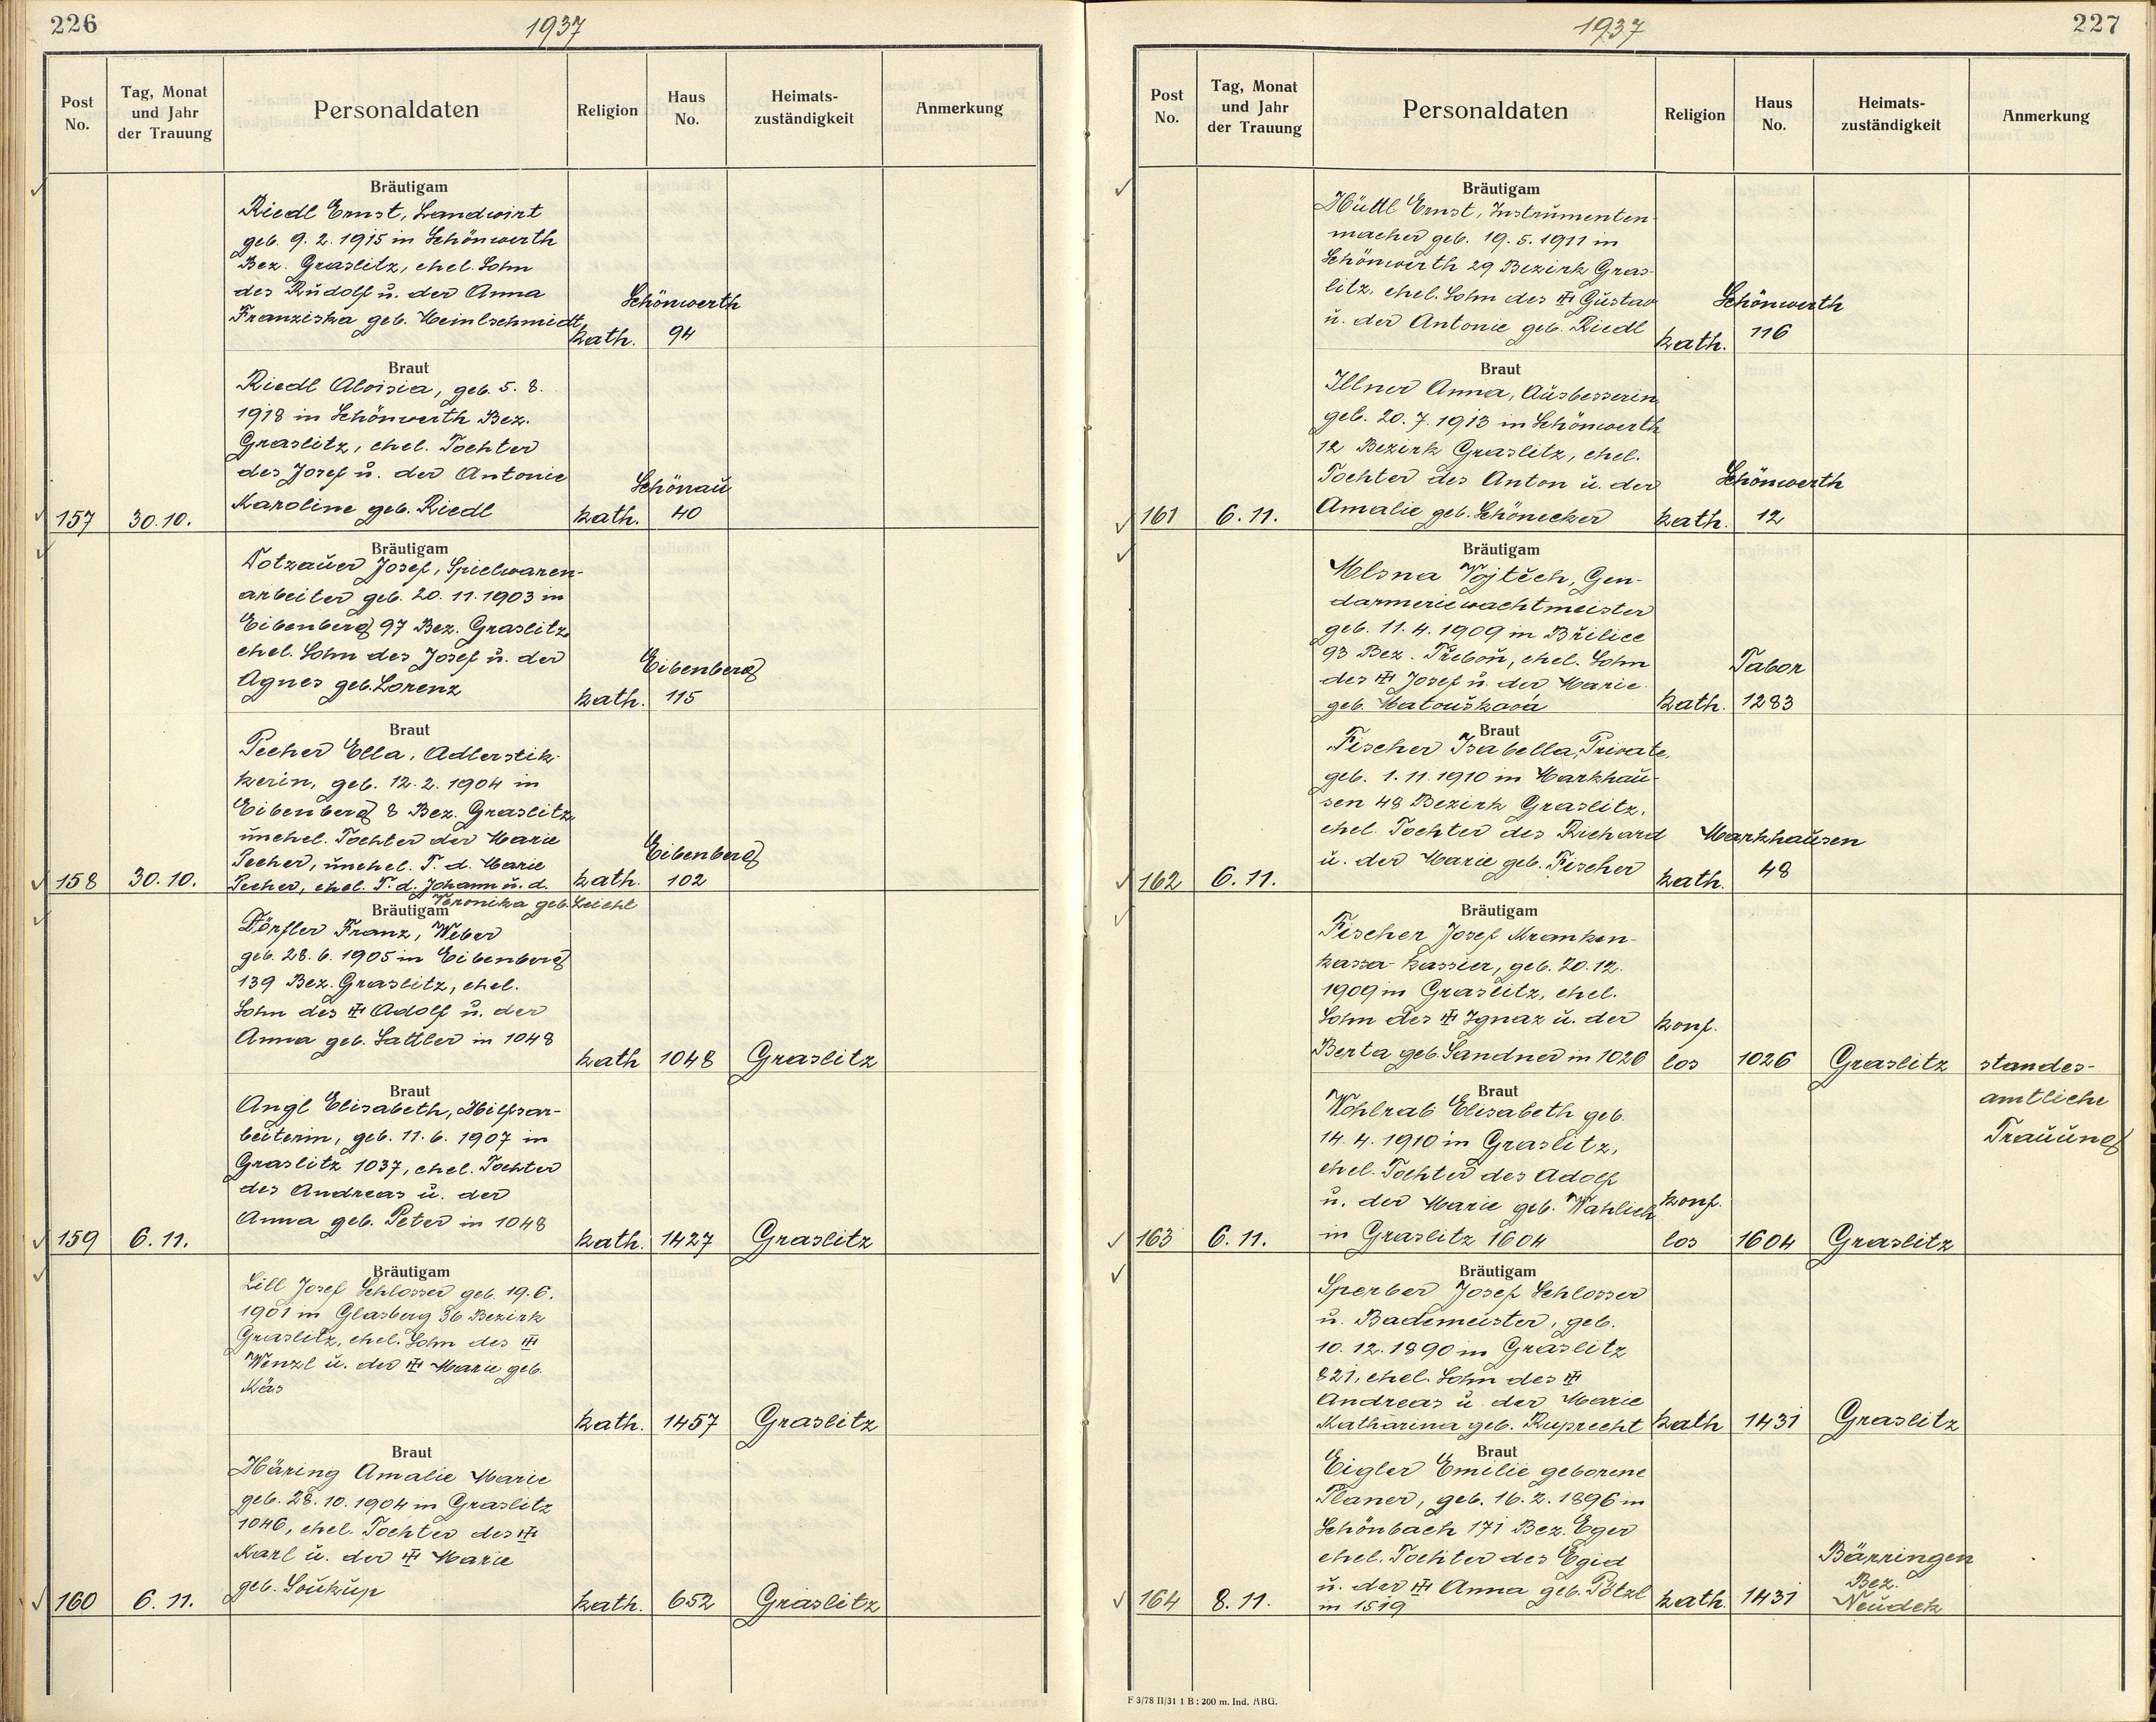 226
1937
Post No.
Tag, Monat und Jahr der Trauung
Personaldaten
Religion
Haus No.
Heimats-zuständigkeit
Anmerkung
Bräutigam
Riedl Ernst, Landwirt
geb. 9. 2. 1915 in Schönwerth
Bez. Graslitz, ehel. Sohn
des Rudolf u. der Anna
Franziska geb. Meinlschmidt
Schönwerth
kath. 94
Braut
Riedl Aloisia, geb. 5. 8.
1918 in Schönwerth Bez.
Graslitz, ehel. Tochter
des Josef u. der Antonie
Karoline geb. Riedl
Schönau
157 30.10. kath. 40
Bräutigam
Totzauer Josef, Spielwaren-
arbeiter geb. 20. 11. 1903 in
Eibenberg 97 Bez. Graslitz
ehel. Sohn des Josef u. der
Agnes geb. Lorenz
Eibenberg
kath. 115
Braut
Pecher Ella, Adlerstik-
kerin, geb. 12. 2. 1904 in
Eibenberg 8 Bez. Graslitz
unehel. Tochter der Marie
Pecher, unehel. T. d. Marie
Pecher, ehel. T. d. Johann u. d.
Veronika geb. Leicht
Eibenberg
158 30.10. kath. 102
Bräutigam
Dörfler Franz, Weber
geb. 28. 6. 1905 in Eibenberg
139 Bez. Graslitz, ehel.
Sohn des Adolf u. der
Anna geb. Sattler in 1048
kath 1048 Graslitz
Braut
Angl Elisabeth, Hilfsar-
beiterin, geb. 11. 6. 1907 in
Graslitz 1037, ehel. Tochter
des Andreas u. der
Anna geb. Peter in 1048
159 6. 11. kath. 1427 Graslitz
Bräutigam
Lill Josef Schlosser geb. 19. 6.
1901 in Glasberg 36 Bezirk
Graslitz, ehel. Sohn des
Wenzl u. der Marie geb.
Käs
kath. 1457 Graslitz
Braut
Häring Amalie Marie
geb. 28. 10. 1904 in Graslitz
1046, ehel. Tochter des
Karl u. der Marie
geb. Soukup
160 6. 11. kath. 652 Graslitz
1937
227
Post No.
Tag, Monat und Jahr der Trauung
Personaldaten
Religion
Haus No.
Heimats-zuständigkeit
Anmerkung
Bräutigam
Hüttl Ernst, Instrumenten-
macher geb. 19. 5. 1911 in
Schönwerth 29 Bezirk Gras-
litz, ehel. Sohn des Gustav
u. der Antonie geb. Riedl
Schönwerth
kath. 116
Braut
Illner Anna, Ausbesserin
geb. 20. 7. 1913 in Schönwerth
12 Bezirk Graslitz, ehel.
Tochter des Anton u. der
Amalie geb. Schönecker
Schönwerth
161 6. 11. kath. 12
Bräutigam
Mlsna Vojtěch, Gen-
darmeriewachtmeister
geb. 11. 4. 1909 in Břilice
93 Bez. Třeboň, ehel. Sohn
des Josef u. der Marie
geb. Matoušková
Tabor
kath. 1283
Braut
Fischer Isabella, Private,
geb. 1. 11. 1910 in Markhau-
sen 48 Bezirk Graslitz,
ehel. Tochter des Richard
u. der Marie geb. Fischer
Markhausen
162 6. 11. kath. 48
Bräutigam
Fischer Josef Kranken-
kassa-kassier, geb. 20. 12.
1909 in Graslitz, ehel.
Sohn des Ignaz u. der
Berta geb. Sandner in 1026
konf.
los 1026 Graslitz standes-
amtliche
Trauung
Braut
Wohlrab Elisabeth geb.
14. 4. 1910 in Graslitz,
ehel. Tochter des Adolf
u. der Marie geb. Wahlich
in Graslitz 1604
konf.
163 6. 11. los 1604 Graslitz
Bräutigam
Sperber Josef Schlosser
u. Bademeister, geb.
10. 12. 1890 in Graslitz
821, ehel. Sohn des
Andreas u. der Marie
Katharina geb. Ruprecht
kath 1431 Graslitz
Braut
Eigler Emilie geborene
Planer, geb. 16. 2. 1896 in
Schönbach 171 Bez. Eger
ehel. Tochter des Egid
u. der Anna geb. Pötzl
in 1519
Bärringen
Bez.
Neudek
164 8. 11. kath. 1431
F 3/78 II/31 1 B : 200 m. Ind. ABG.